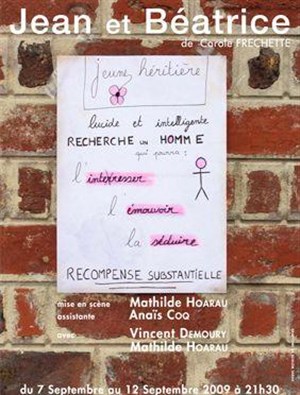 Jean et Béatrice
de Carole FRECHETTE
jeune héritière
lucide et intelligente
RECHERCHE UN HOMME
qui pourra :
l'interresser
l'émouvoir
la séduire
RECOMPENSE SUBSTANTIELLE
mise en scène Mathilde HOARAU
assistante Anaïs COQ
avec Vincent DEMOURY
Mathilde HOARAU
du 7 Septembre au 12 Septembre 2009 à 21h30